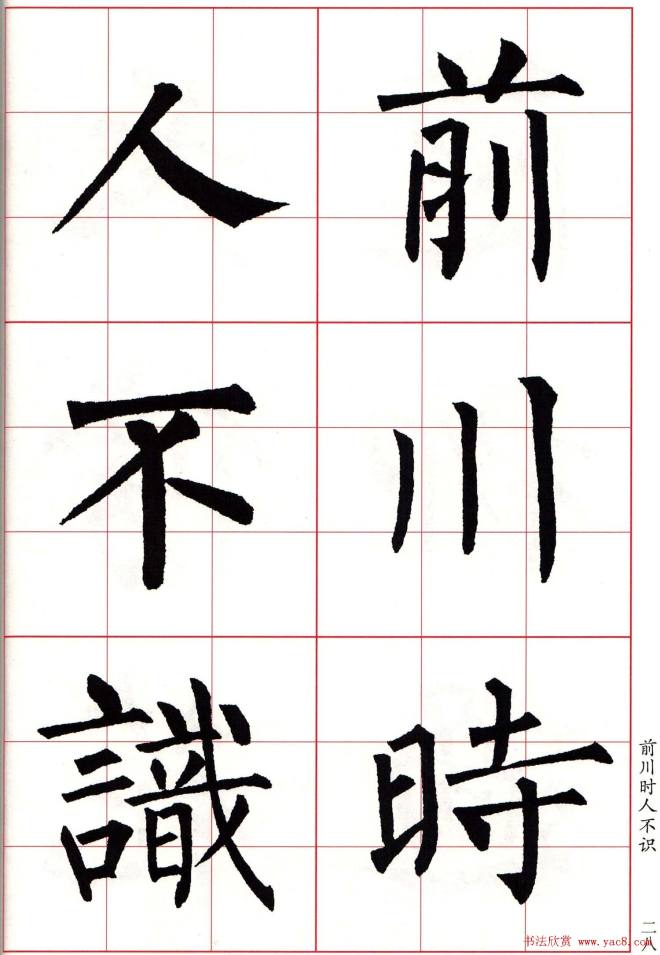 前川時
人不識
前川时人不识
二八
书法欣赏 www.yac8.com